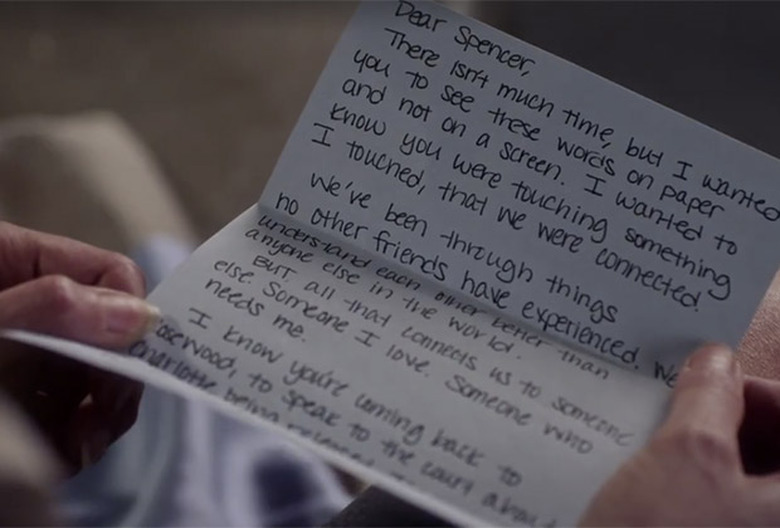 Dear Spencer,
There isn't much time, but I wanted
you to see these words on paper
and not on a screen. I wanted to
know you were touching something
I touched, that we were connected.
We've been through things
no other friends have experienced. We
understand each other better than
anyone else in the world.
But all that connects us to someone
else. Someone I love. Someone who
needs me.
I know you're coming back to
Rosewood, to speak to the court about
Charlotte being released